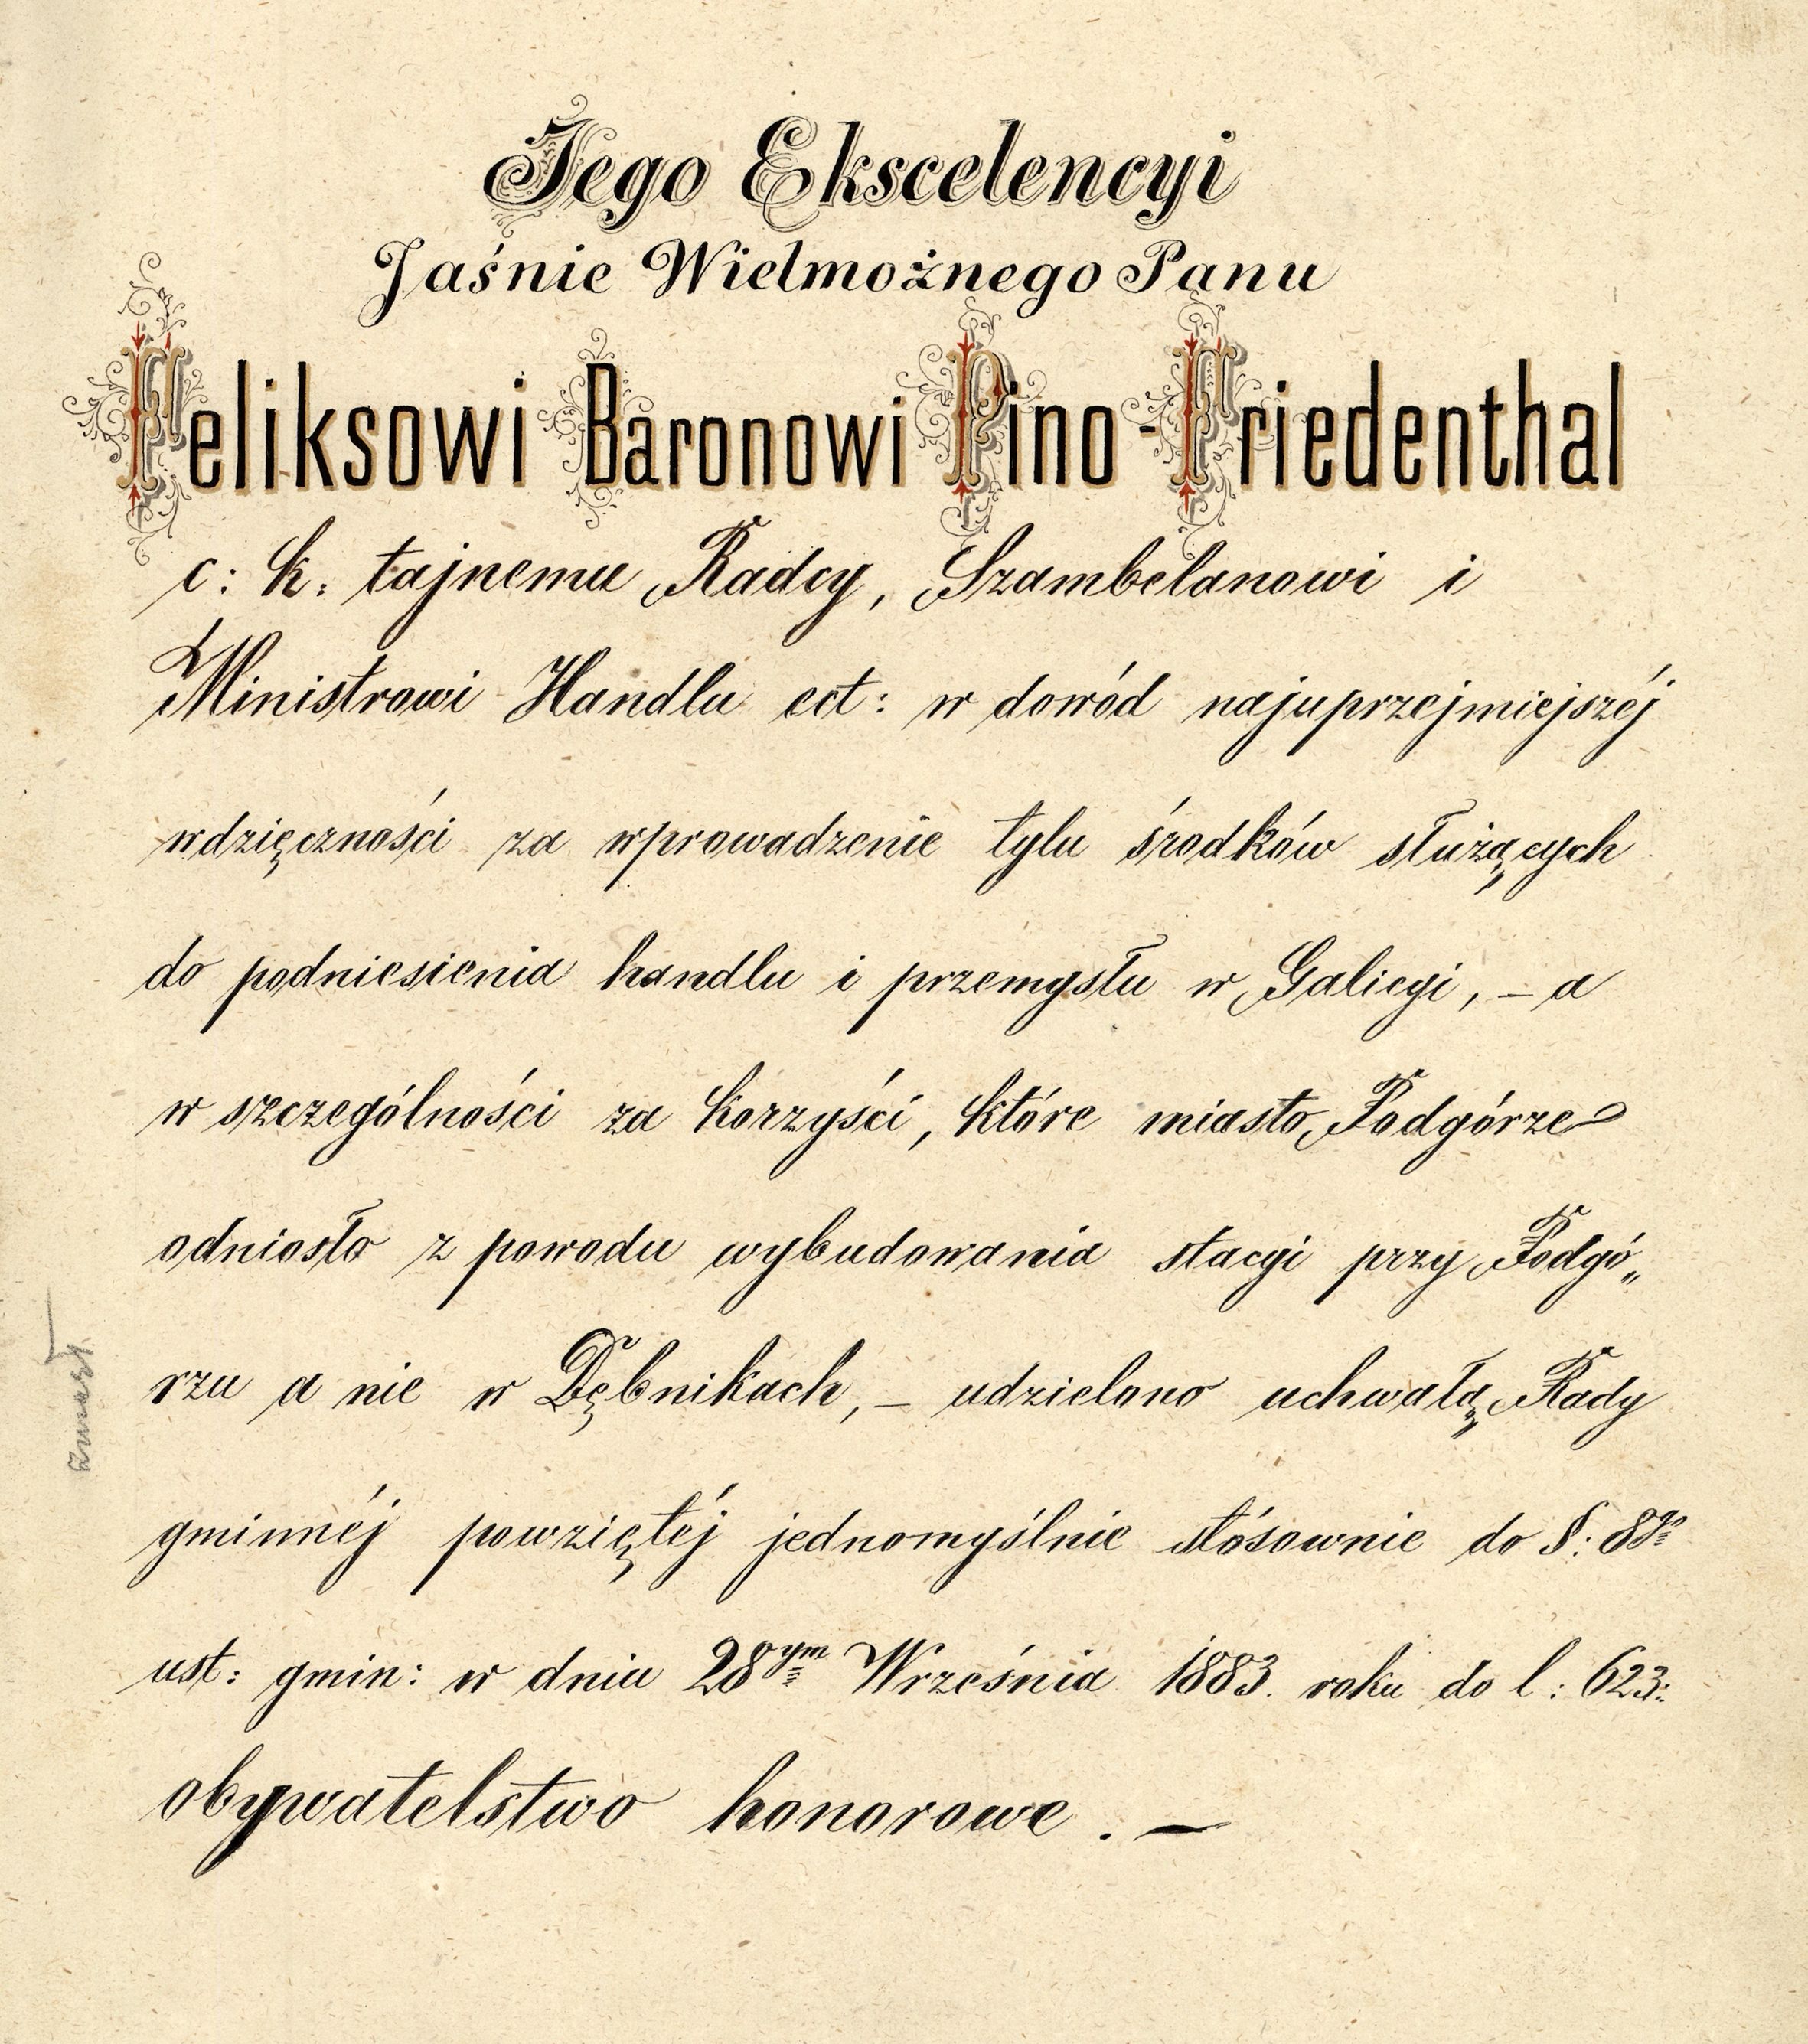 Jego Ekscelencyi
Jaśnie Wielmożnego Panu
Feliksowi Baronowi Pino-Friedenthal
c: k: tajnemu Radcy, Szambelanowi i
Ministrowi Handlu ect: w dowód najuprzejmiejszéj
wdzięczności za wprowadzenie tylu środków służących
do podniesienia handlu i przemysłu w Galicyi, – a
w szczególności za korzyści, które miasto Podgórze
odniosło z powodu wybudowania stacyi przy Podgó„
rzu a nie w Dębnikach, – udzielono uchwałą Rady
gminnéj powziętéj jednomyślnie stósownie do §: 8go
ust: gmin: w dniu 28ym Września 1883. roku do l: 623:
obywatelstwo honorowe. —
zmarł